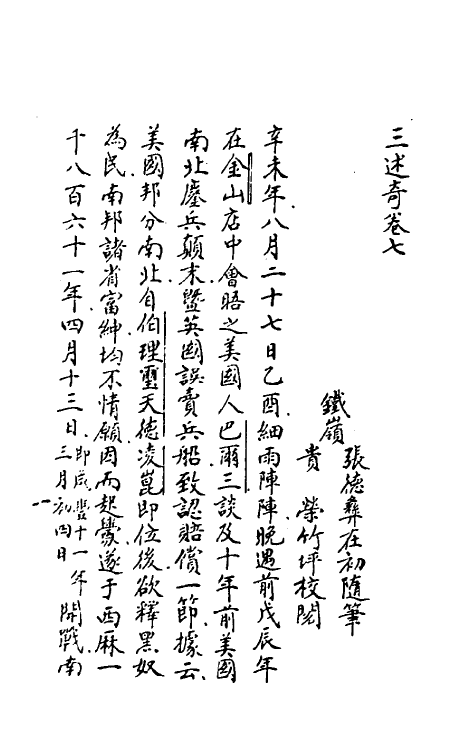 三述奇卷七
鐵嶺
張德彝在初隨筆
貴榮竹坪校閱
辛未年八月二十七日乙酉細雨陣陣晚遇前戊辰年
在金山店中會晤之美國人巴爾三談及十年前美國
南北鏖兵顛末暨英國誤賣兵船致認賠償一節據云
美國邦分南北自伯理璽天德凌崑即位後欲釋黑奴
為民南邦諸省富紳均不情願因而起釁遂于西麻一
千八百六十一年四月十三日即咸豐十一年三月初四日開戰南